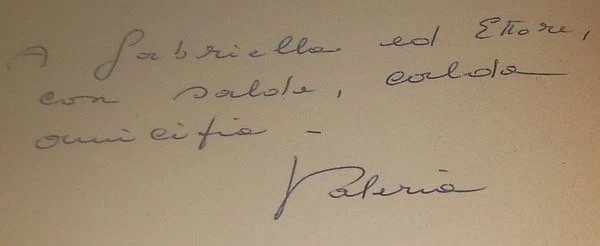 A Gabriella ed Ettore,
con salda, calda
amicizia -
Valeria